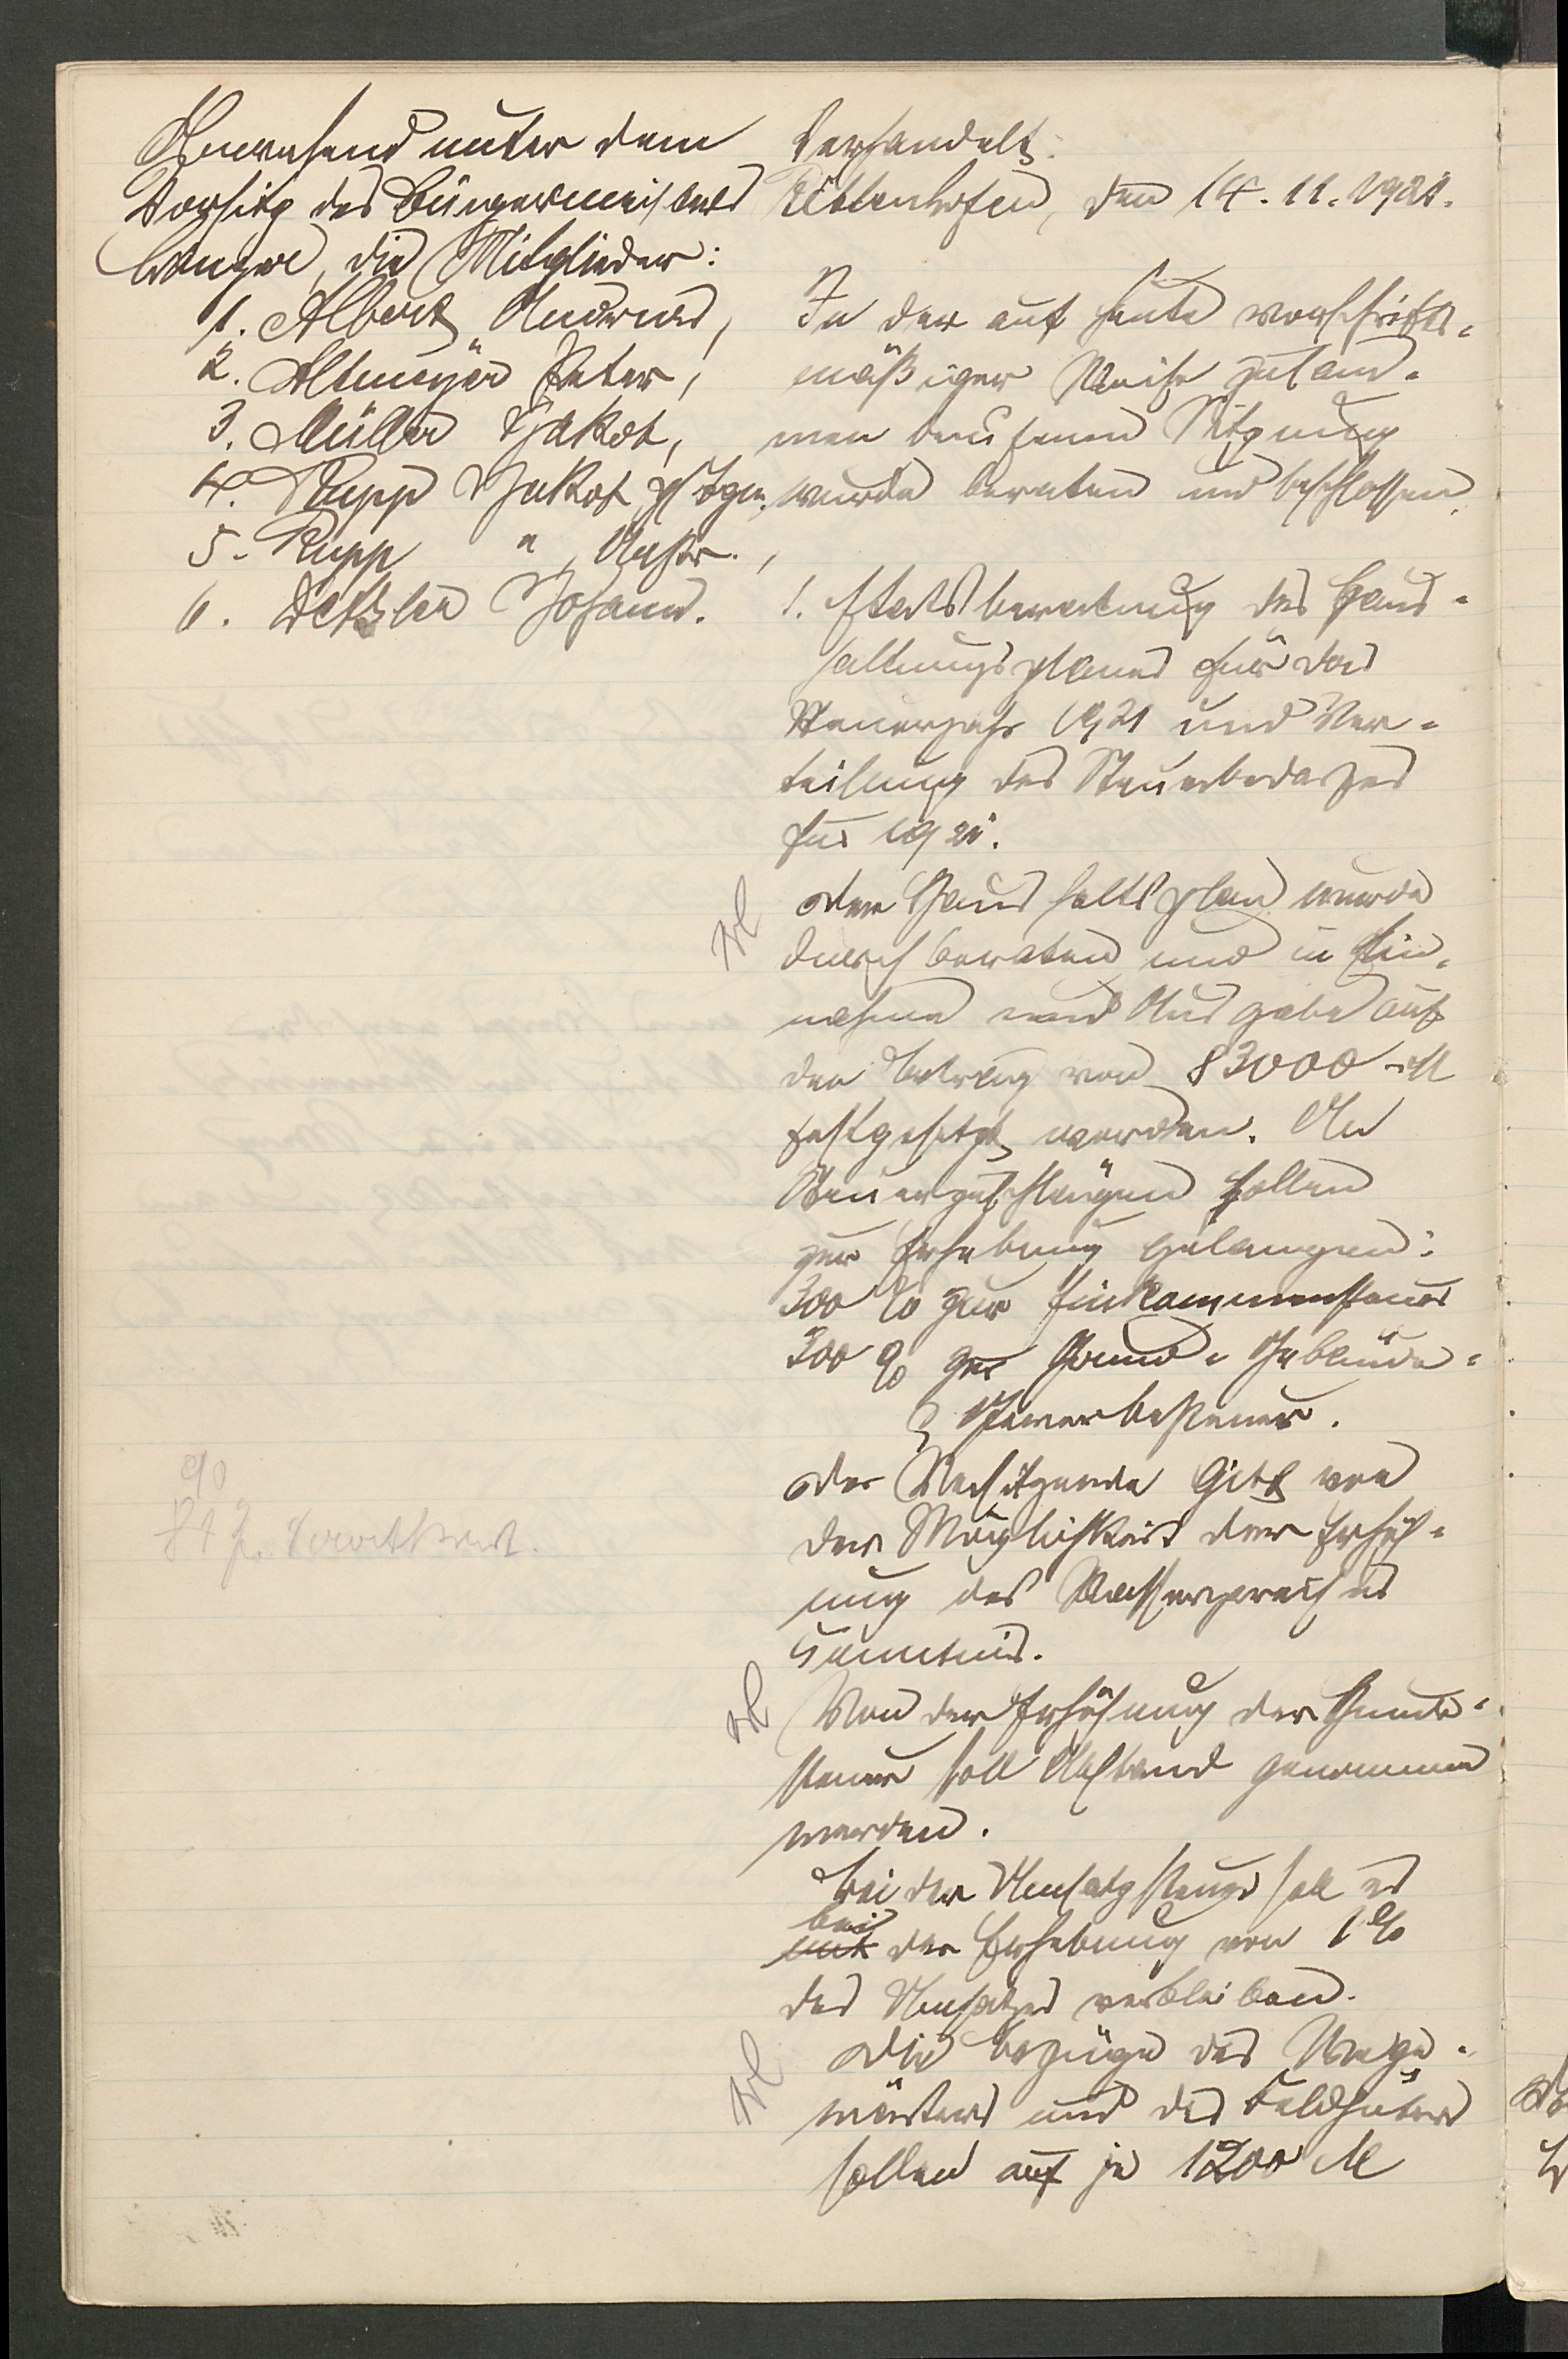 Anwesend unter dem
Vorsitz des Bürgermeisters
die Mitglieder:
1. Albert Andreas,
2. Altmeyer Peter,
3. Müller Jakob,
4. Rupp Jakob
5. Rupp " ,
6. Johann.
Verhandelt.
Püttlenhofen, den 14. 11. 1921.
In der auf heute vorschrifts-
mäßiger Weise zusam-
men berufenen Sitzung
wurde beraten und beschlossen
1. Etatsberatung des Haus-
haltungsplanes für das
Steuerjahr 1921 und Ver-
teilung des Steuerbedarfes
für 1921.
Der Haushaltsplan wurde
durchberaten und in Ein-
nahme und Ausgabe auf
den Betrag von 83000 M
festgesetzt worden. An
Steuerzuschlägen sollen
zur Erhebung gelangen:
300 % zur Einkommensteuer
300 % zur Grund- Gebäude-
& Gewerbesteuer.
Der Vorsitzende gibt von
der Möglichkeit der Erhöh-
ung des Wasserpreises
Kenntnis.
Von der Erhöhung der Hunde-
steuer soll Abstand genommen
werden.
Bei der Umsatzsteuer soll es
bei
mit der Erhebung von 1%
des Umsatzes verbleiben.
Die Bezüge des Wege-
wärters und des Feldhüters
sollen auf je 1200 M